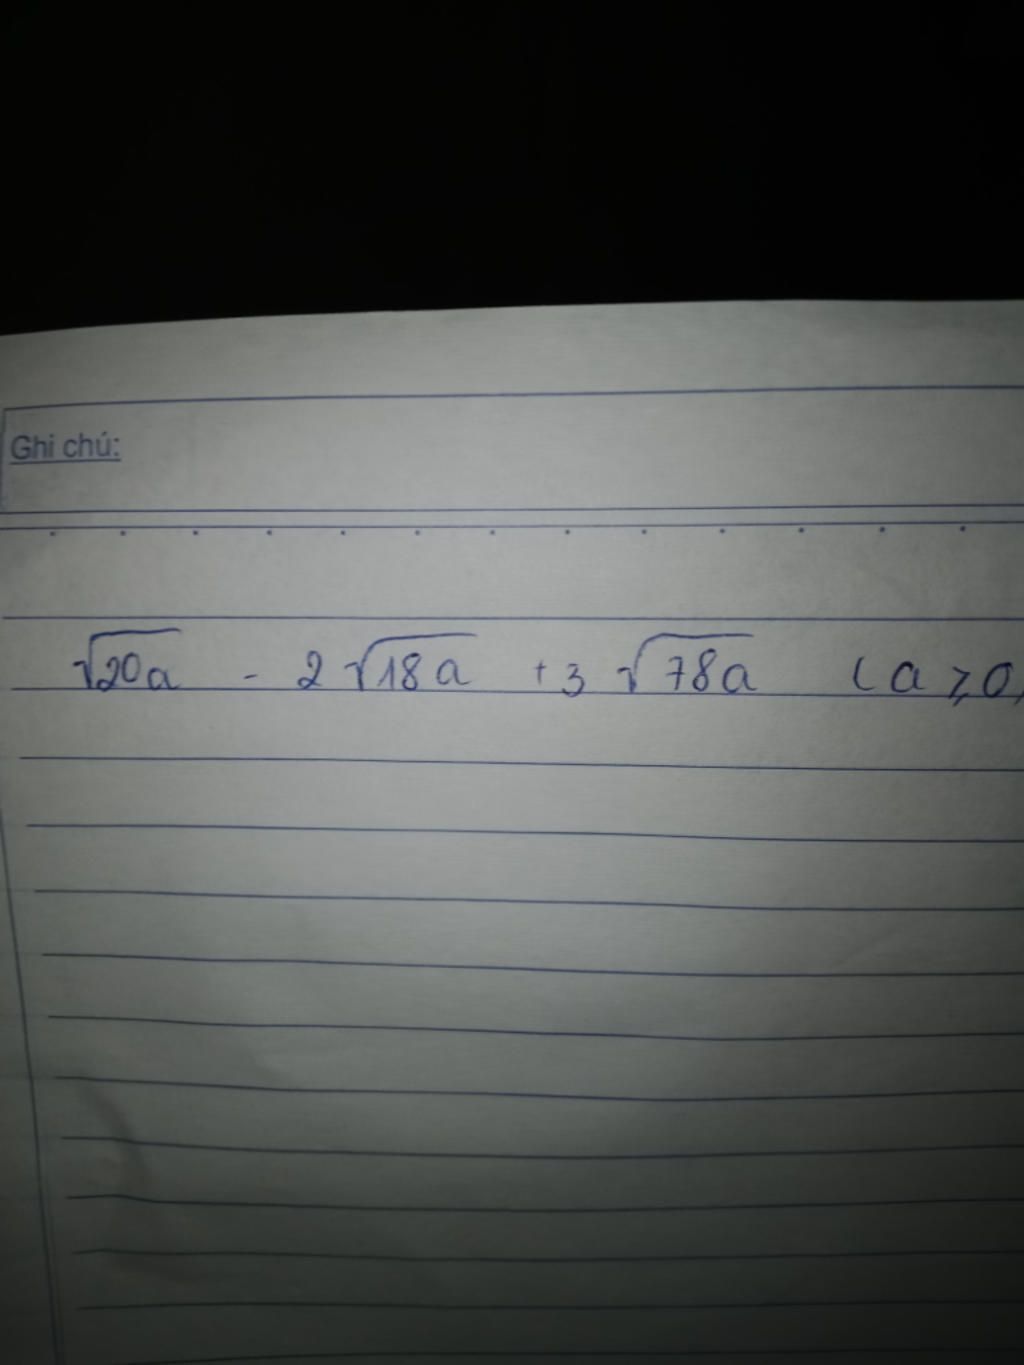 Ghi chú:
√20a - 2 √18a + 3 √78a ( a ⩾ 0,